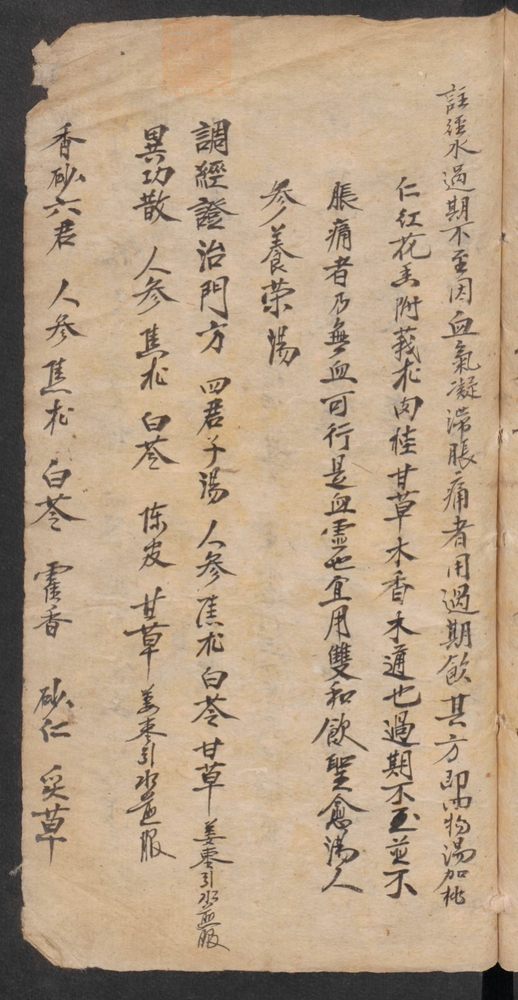 註經水過期不至因血氣凝滯脹痛者用過期飲其方即四物湯加桃
仁紅花香附莪朮肉桂甘草木香木通也過期不至並不
脹痛者乃無血可行是血虛也宜用雙和飲聖愈湯人
參養荣湯
調經證治門方 四君子湯 人參焦朮白苓甘草 姜枣引水煎服
異功散 人參 焦朮 白苓 陈皮 甘草 姜枣引水煎服
香砂六君 人參 焦朮 白苓 霍香 砂仁 炙草